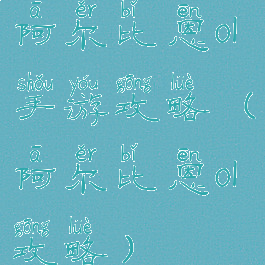 ā ěr bǐ ēn
阿尔比恩ol
shǒu yóu gōng lüè
手游攻略(
ā ěr bǐ ēn
阿尔比恩ol
gōng lüè
攻略)